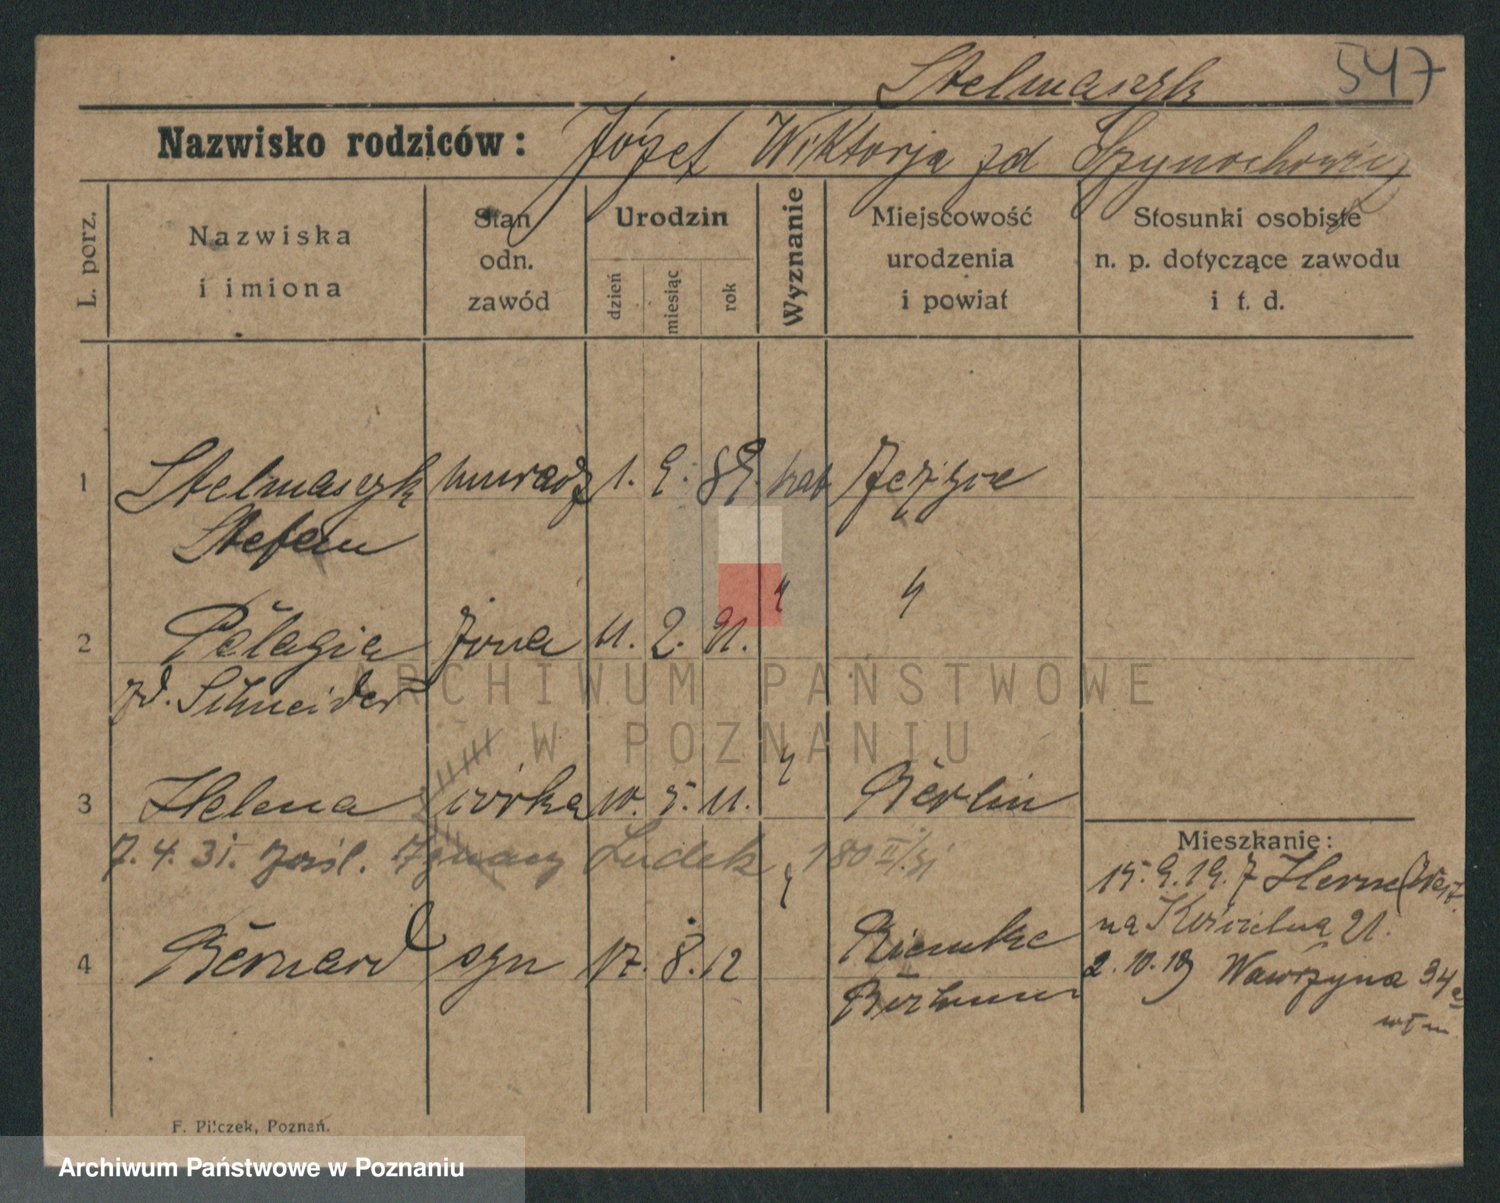 Stelmaszyk 547
Nazwisko rodziców: Józef Wiktorja zd
L. porz.
Nazwiska
i imiona
Stan
odn.
zawód
Urodzin
dzień
miesiąc
rok
Wyznanie
Miejscowość
urodzenia
i powiat
Stosunki osobiste
n. p. dotyczące zawodu
i t. d.
1 Stelmaszyk 1. 9. 89. kat Jeżyce
Stefan
2 Pelagia żona 11. 2. 91. " "
zd. Schneider
3 Helena córka 10. 5. 11. " Berlin
7. 4. 31. Ludek 180
Mieszkanie:
15. 9. 19. z Herne
na Kościelna 21.
4 Bernard syn 17. 8. 12 "
2. 10. 19 Wawrzyna 34
F. Pilczek, Poznań.
ARCHIWUM PAŃSTWOWE
W POZNANIU
Archiwum Państwowe w Poznaniu